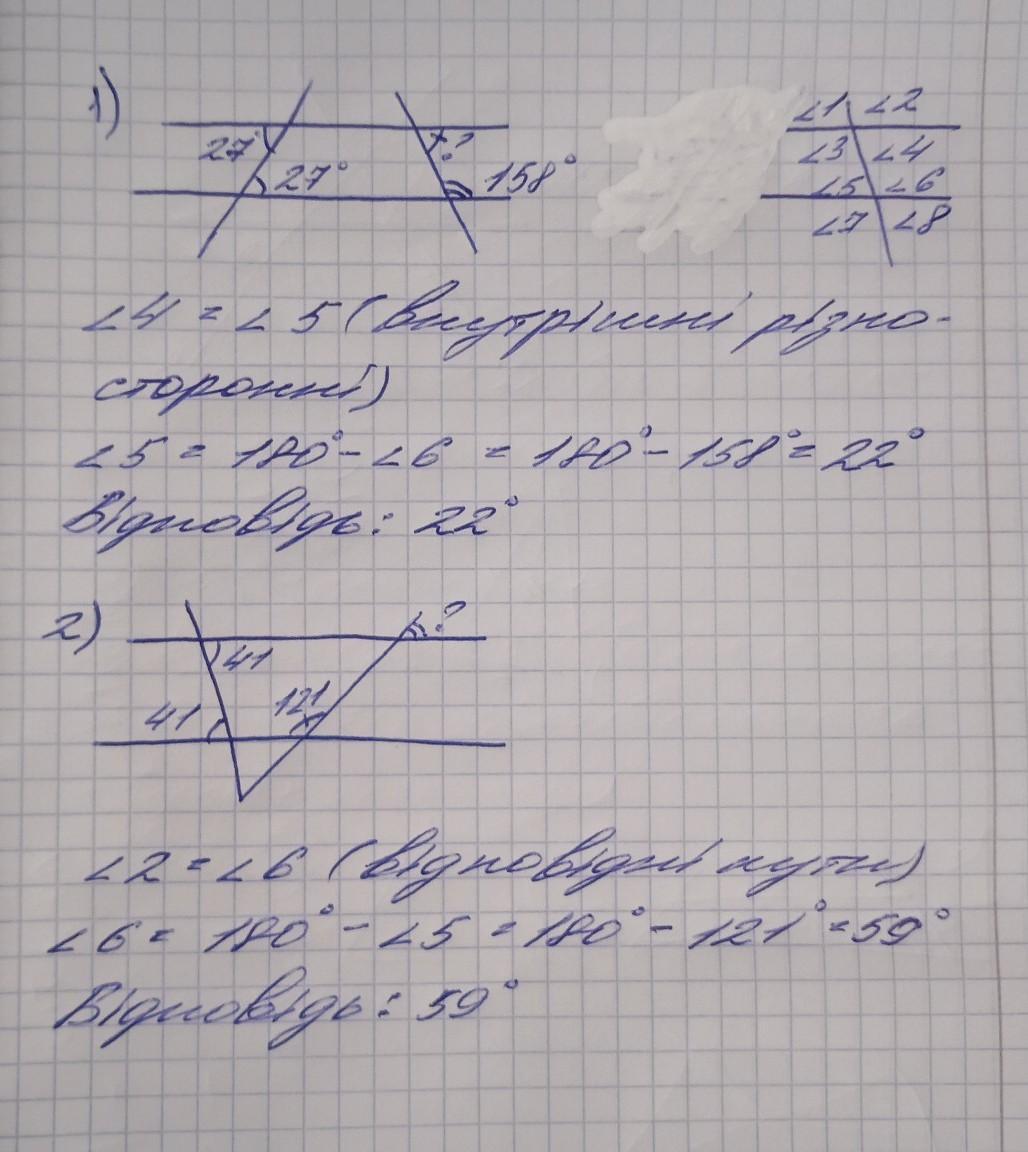 1)
27° 27° ? 158°
∠1 ∠2
∠3 ∠4
∠5 ∠6
∠7 ∠8
∠4 = ∠5 (внутрішні різно-
сторонні)
∠5 = 180° - ∠6 = 180° - 158° = 22°
Відповідь: 22°
2)
?
41
41 121
∠2 = ∠6 (відповідні кути)
∠6 = 180° - ∠5 = 180° - 121° = 59°
Відповідь: 59°